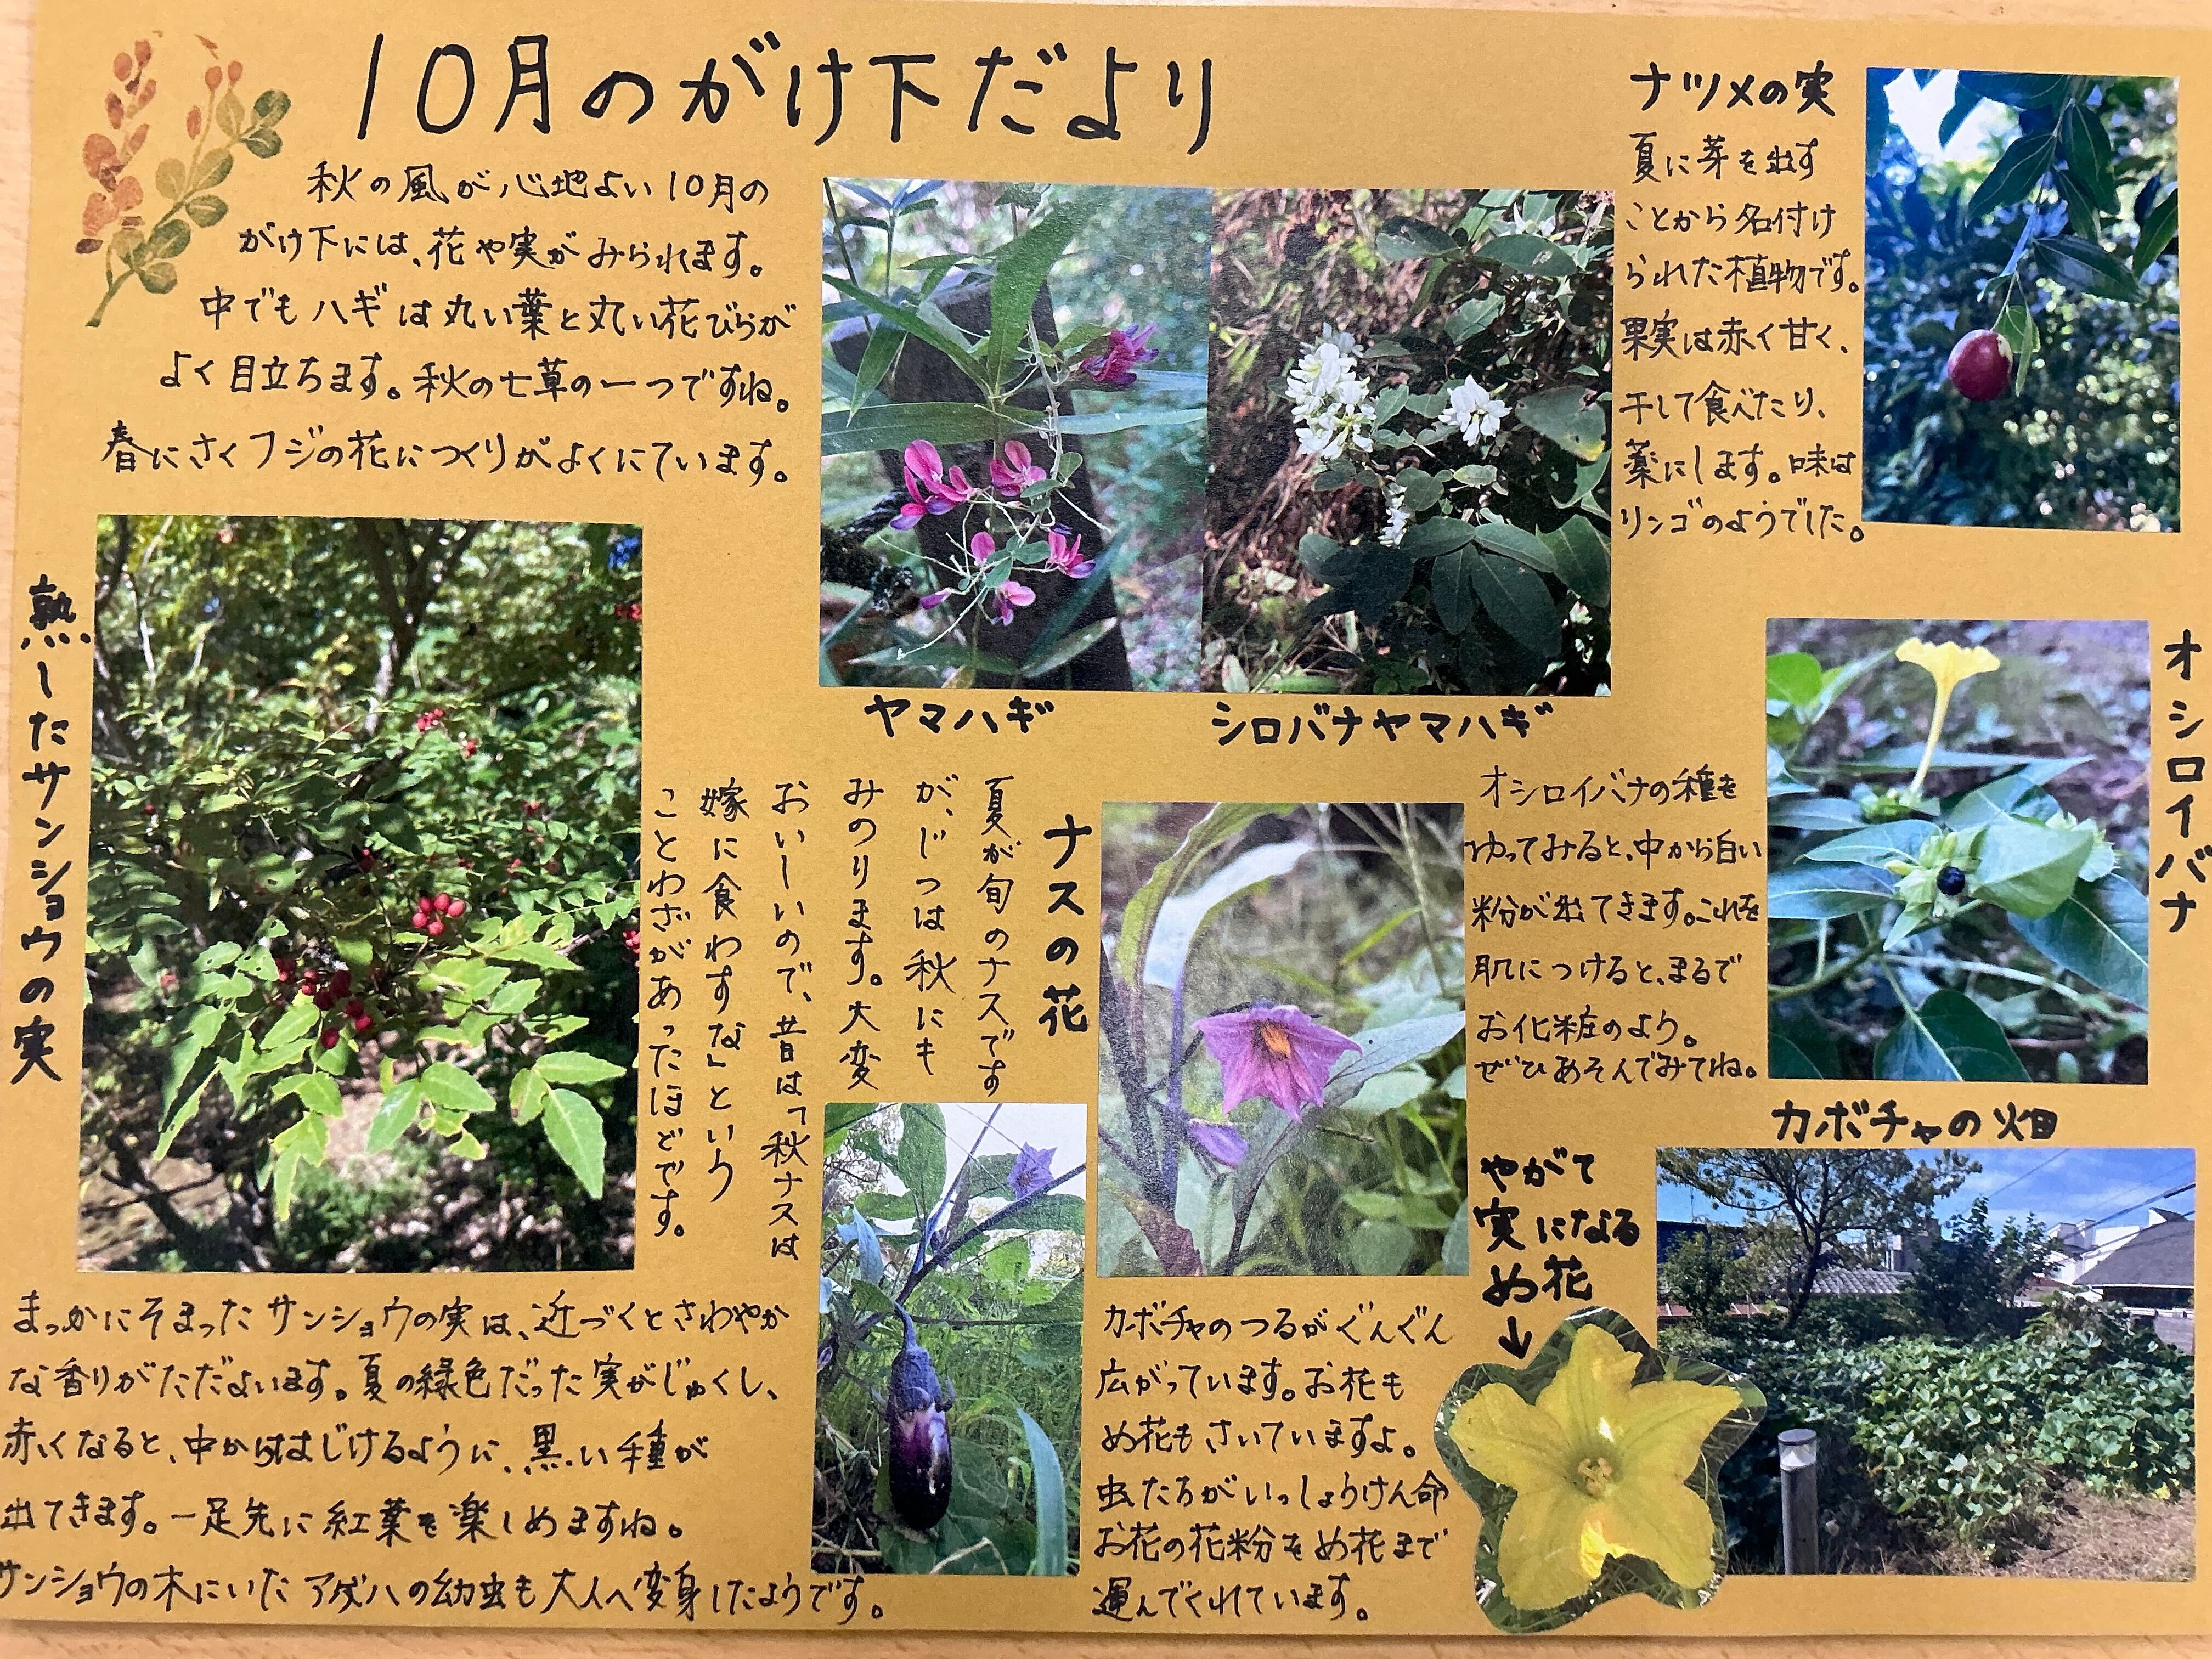 10月のがけ下だより
秋の風が心地よい10月の
がけ下には、花や実がみられます。
中でもハギは丸い葉と丸い花びらが
よく目立ちます。秋の七草の一つですね。
春にさくフジの花につくりがよくにています。
ヤマハギ
シロバナヤマハギ
ナツメの実
夏に芽を出す
ことから名付け
られた植物です。
果実は赤く甘く、
干して食べたり、
薬にします。味は
リンゴのようでした。
熟したサンショウの実
まっかにそまったサンショウの実は、近づくとさわやか
な香りがただよいます。夏の緑色だった実がじゅくし、
赤くなると、中からはじけるように、黒い種が
出てきます。一足先に紅葉も楽しめますね。
サンショウの木にいたアゲハの幼虫も大人へ変身したようです。
ナスの花
夏が旬のナスです
が、じつは秋にも
みのります。大変
おいしいので、昔は「秋ナスは
嫁に食わすな」という
ことわざがあったほどです。
オシロイバナ
オシロイバナの種を
わってみると、中から白い
粉が出てきます。これを
肌につけると、まるで
お化粧のよう。
ぜひあそんでみてね。
カボチャの畑
やがて
実になる
め花
↓
カボチャのつるがぐんぐん
広がっています。お花も
め花もさいていますよ。
虫たちがいっしょうけん命
お花の花粉をめ花まで
運んでくれています。